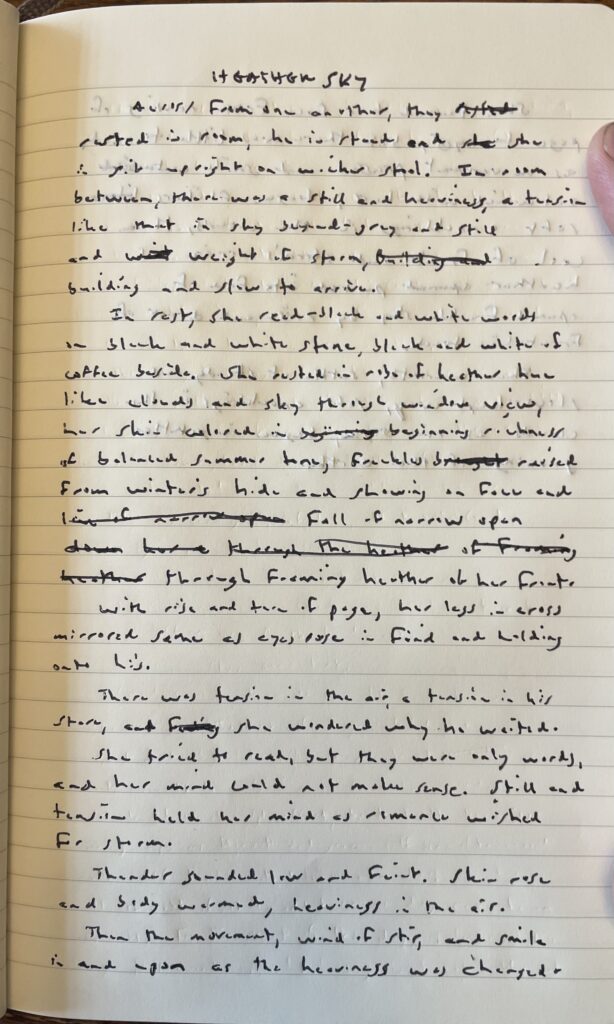 HEATHER SKY
Across from one another, they rested
rested in room, he in stand and she she
in sit upright on wicker stool. In room
between, there was a still and heaviness, a tension
like that in sky beyond-grey and still
and wait weight of storm, building and
building and slow to arrive.
In rest, she read-black and white words
on black and white stone, black and white of
coffee beside. She rested in robe of heather hue
like clouds and sky through window view,
her skin colored in beginning beginning richness
of balanced summer tone, freckles brought raised
from winter's hide and showing on face and
line of narrow open fall of narrow open
down through the heather of framing
heather through framing heather of her front.
With rise and turn of page, her legs in cross
mirrored same as eyes rose in find and holding
onto his.
There was tension in the air, a tension in his
stare, and she wondered why he waited.
She tried to read, but they were only words,
and her mind could not make sense. Still and
tension held her mind as romance wished
for storm.
Thunder sounded low and faint. Skin rose
and body warmed, heaviness in the air.
Then the movement, wind of stir, and smile
in and upon as the heaviness was changed.